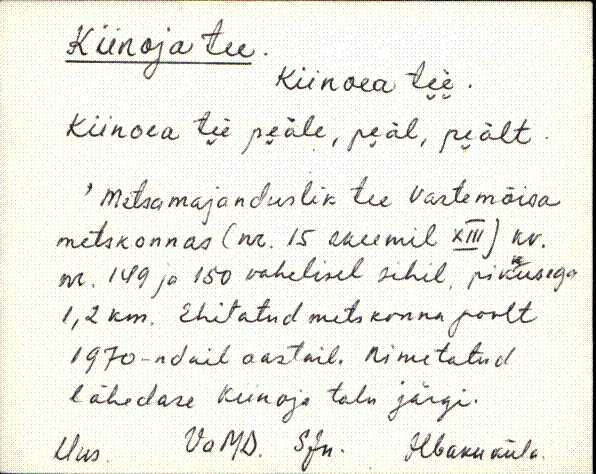 Kiinoja tee.
Kiinoea tëë.
Kiinoea tië peäle, peäl, peält.
'Metsamajanduslik tee Vastemõisa
metskonnas (nr. 15 skeemil XIII) kv.
nr. 149 ja 150 vahelisel sihil, pikkusega
1,2 km. Ehitatud metskonna poolt
1970-ndail aastail. Nimetatud
lähedase Kiinoja talu järgi.
VoMD. Sjn.